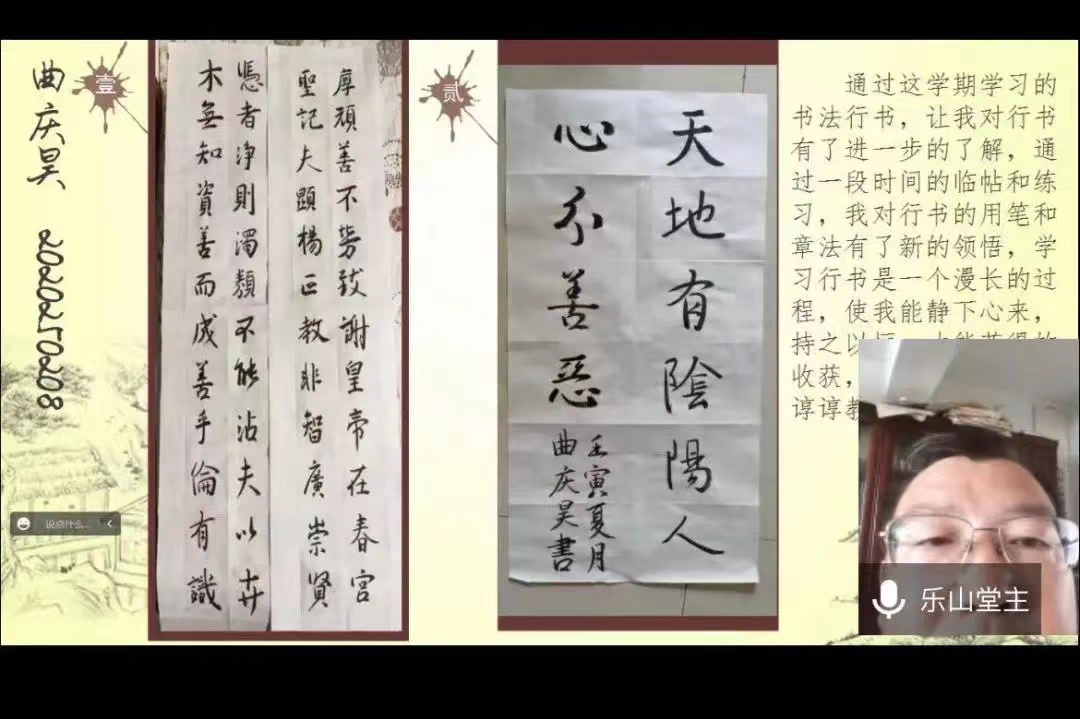 曲庆昊 2020250208
壹
厚頑善不劳致謝皇帝在春宮
聖記夫顕楊正教非智廣崇賢
憑者淨則濁類不能沾夫以卉
木無知資善而成善乎倫有識
贰
天地有陰陽人
心分善惡
壬寅夏月
曲庆昊書
通过这学期学习的
书法行书，让我对行书
有了进一步的了解，通
过一段时间的临帖和练
习，我对行书的用笔和
章法有了新的领悟，学
习行书是一个漫长的过
程，使我能静下心来，
持之以
收获，
谆谆教
说点什么...
乐山堂主